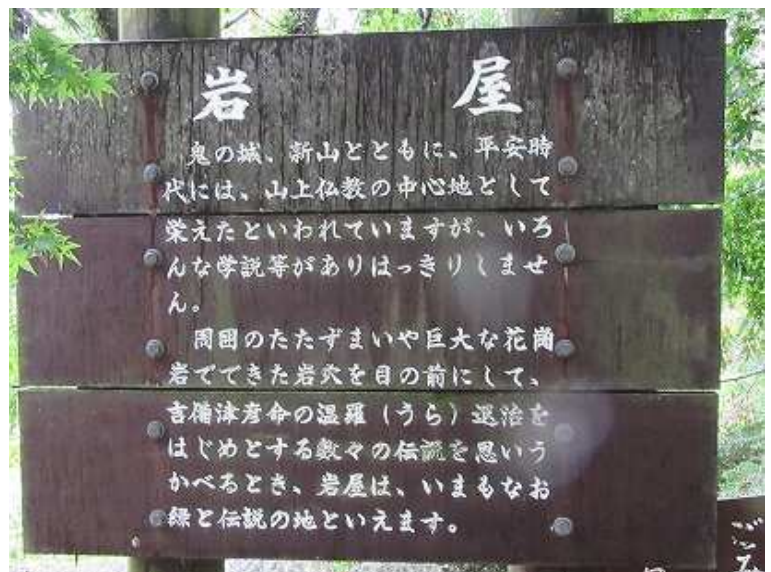 岩屋
鬼の城、新山とともに、平安時
代には、山上仏教の中心地として
栄えたといわれていますが、いろ
んな学説等がありはっきりしませ
ん。
周囲のたたずまいや巨大な花崗
岩でてきた岩穴を目の前にして、
吉備津彦命の温羅（うら）退治を
はじめとする数々の伝説を思いう
かべるとき、岩屋は、いまもなお
緑と伝説の地といえます。
ごみ